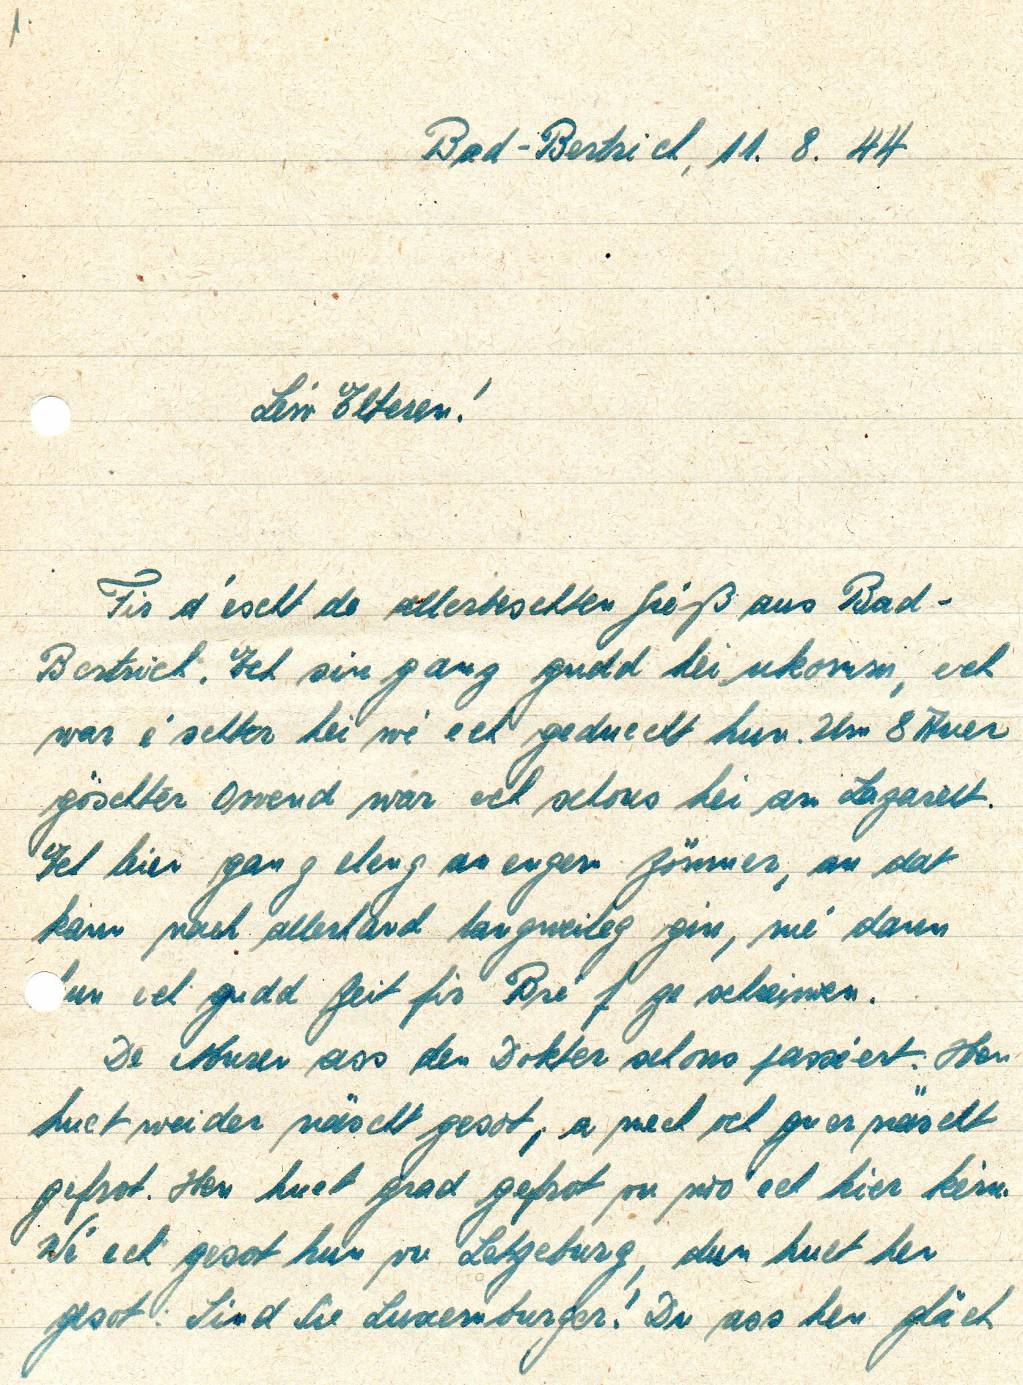 1.
Bad-Bertrich, 11. 8. 44
Léiw Elteren!
Fir d'éscht de allerbeschten Gré ß aus Bad-
Bertrich. Ech sin ganz gudd hei ukomm, ech
war é schter hei wé ech geduecht hun. Um 8 Auer
göschter Owend war ech schons hei am Lazarett.
Ech leien ganz eleng an engem Zömmer, an dat
kann nach allerhand langweileg gin, mé dann
hun ech gudd Zeit fir Bré f ze schreiwen.
De Muren ass den Dokter schons passéert. Hen
huet weider näscht gesot, a mech och guer näscht
gefrot. Hen huet grad gefrot vu wo ech hier kém.
Wé ech gesot hun vu Letzeburg, dun huet hen
gesot: Sind Sie Luxemburger! Du ass hen gläch